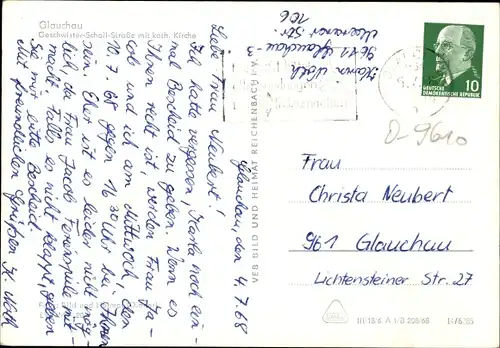 Glauchau
Geschwister-Scholl-Straße mit kath. Kirche
9611 Glauchau-3
106
Glauchau, den 4.7.68
Liebe Frau Neubert!
Ich hatte vergessen, Karla noch ein-
mal Bescheid zu geben. Wenn es
Ihnen recht ist, werden Frau Ja-
cob und ich am Mittwoch, den
10.7.68 gegen 16.30 Uhr bei Ihnen
sein. Eher ist es leider nicht mög-
lich, da Frau Jacob Ferienspiele mit-
macht. Falls es nicht klappt, geben
Sie mir bitte Bescheid.
Mit freundlichen Grüßen K.
VEB BILD UND HEIMAT REICHENBACH I. V.
10
DEUTSCHE
DEMOKRATISCHE REPUBLIK
D-9610
Frau
Christa Neubert
961 Glauchau
Lichtensteiner Str. 27
III/18/6 A 1/B 208/68